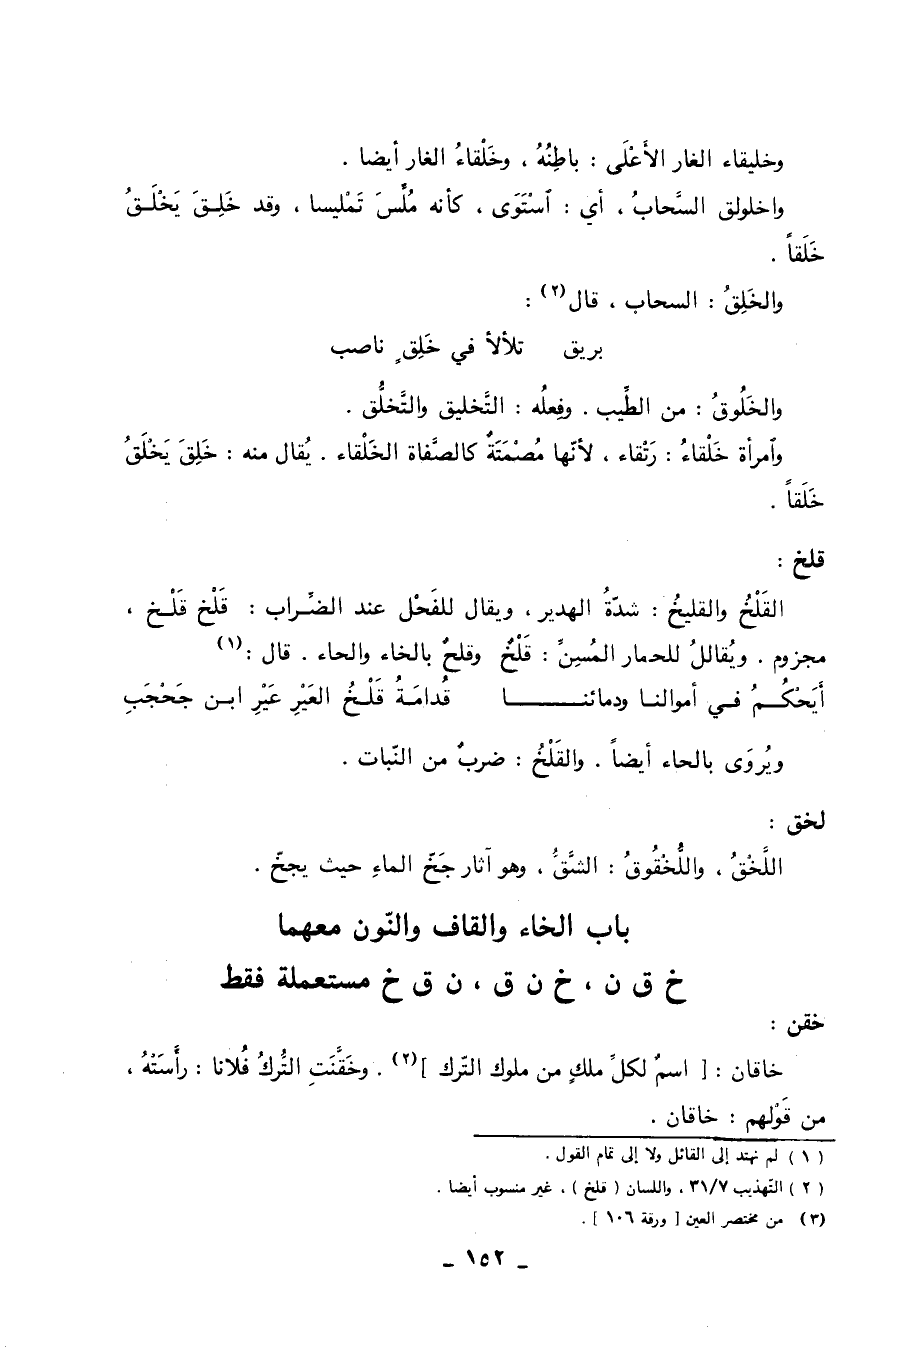 وخليقاء الغار الأَعْلَى : باطِنُهُ ، وخَلْقاءُ الغار أيضا .
واخلولق السَّحابُ ، أي : اَسْتَوَى ، كأنه مُلِّسَ تَمْليسا ، وقد خَلِـقَ يَخْلَـقُ
خَلَقاً .
والخَلِقُ : السحاب ، قال(٢) :
بريق تلألأ في خَلِقٍ ناصب
والخَلُوقُ : من الطِّيب . وفِعلُه : التَّخليق والتَّخلُّق .
وٱمرأة خَلْقاءُ : رَتْقاء ، لأنّها مُصْمَتَةٌ كالصَّفاة الخَلْقاء . يُقال منه : خَلِقَ يَخْلَقُ
خَلَقاً .
قلخ :
القَلْخُ والقليخُ : شدّةُ الهدير ، ويقال للفَحْل عند الضِّراب : قَلْخ قَلْـخ ،
مجزوم . ويُقاللُ للحمار المُسِنِّ : قَلْخٌ وقلحٌ بالخاء والحاء . قال :(١)
أَيَحْكُـمُ فـي أموالنـا ودمائنـــا قُدامَـةُ قَلْـخُ العَيْرِ عَيْرِ ابـن جَحْجَبِ
ويُروَى بالحاء أيضاً . والقَلْخُ : ضربٌ من النّبات .
لخق :
اللَّخْقُ ، واللُّخْقُوقُ : الشَّقُّ ، وهو آثار جَخّ الماءِ حيث يجخّ .
باب الخاء والقاف والنّون معهما
خ ق ن ، خ ن ق ، ن ق خ مستعملة فقط
خقن :
خاقان : [ اسمٌ لكلِّ ملكٍ من ملوك التّرك ](٢) . وخَقَّنَتِ التُّركُ فُلانا : رأَّسَتْهُ ،
من قَوْلهم : خاقان .
( ١ ) لم نهتد إلى القائل ولا إلى تمام القول .
( ٢ ) التّهذيب ٣١/٧ ، واللسان ( قلخ ) ، غير منسوب أيضا .
(٣) من مختصر العين [ ورقة ١٠٦ ] .
ـ ١٥٢ ـ